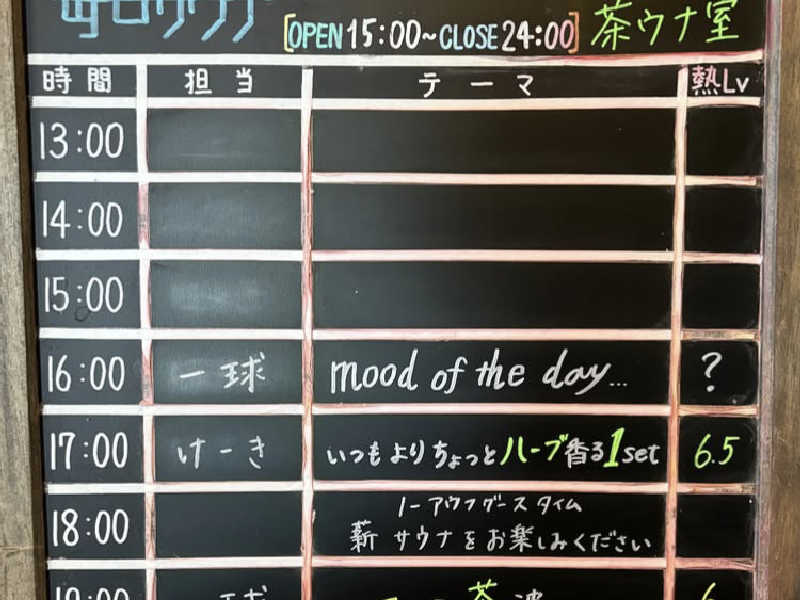 [OPEN 15:00~CLOSE 24:00] 茶ウナ室
時間 担当 テーマ 熱Lv
13:00
14:00
15:00
16:00 一球 mood of the day... ?
17:00 けーき いつもよりちょっとハーブ香る1set 6.5
18:00 ノーアウフグースタイム
薪サウナをお楽しみください